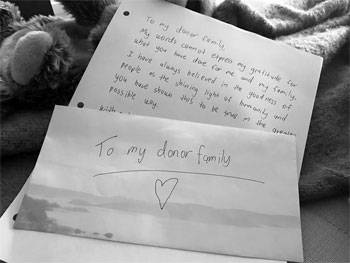 To my donor family,
My words cannot express my gratitude for
what you have done for me and my family.
I have always believed in the goodness of
people as the shining light of humanity and
you have shown this to be true in the greatest
possible way.
To my donor family